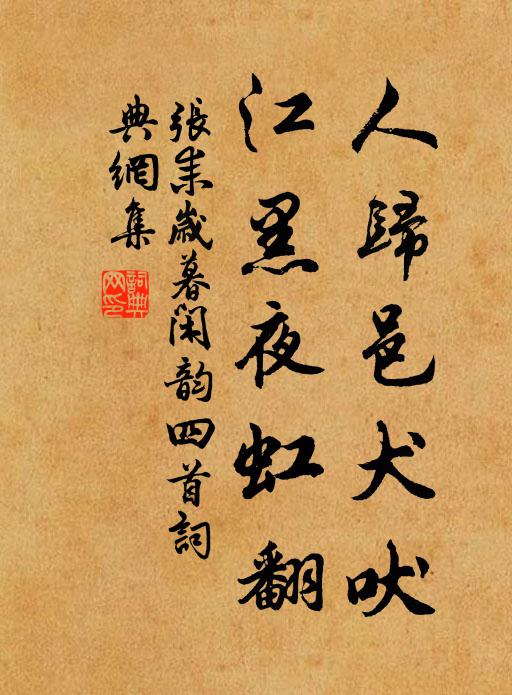 人歸邑犬吠
江黑夜虹翻
張耒歲暮閑韵四首詞
典網集
詞典
网印